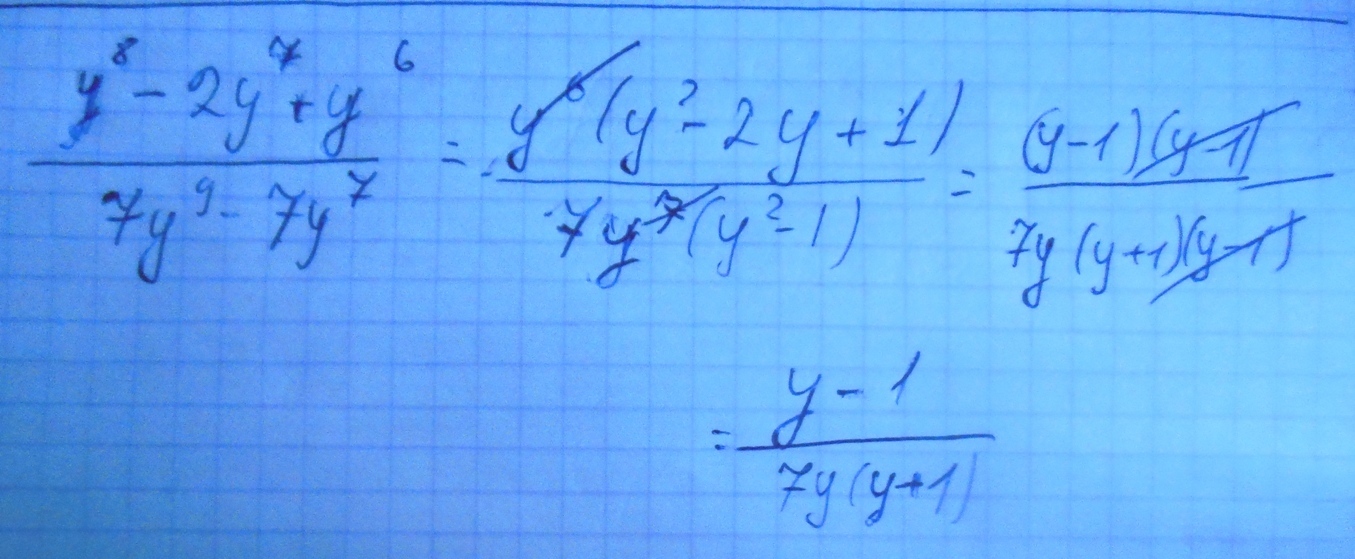 y⁸ - 2y⁷ + y⁶ / 7y⁹ - 7y⁷ = y⁶(y² - 2y + 1) / 7y⁷(y² - 1) = (y-1)(y-1) / 7y(y+1)(y-1)
= y - 1 / 7y(y+1)